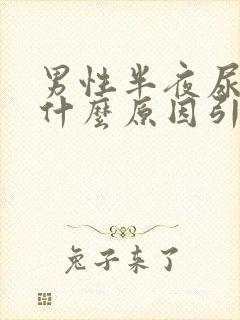 男性半夜尿
什麼原因引
兔子来了